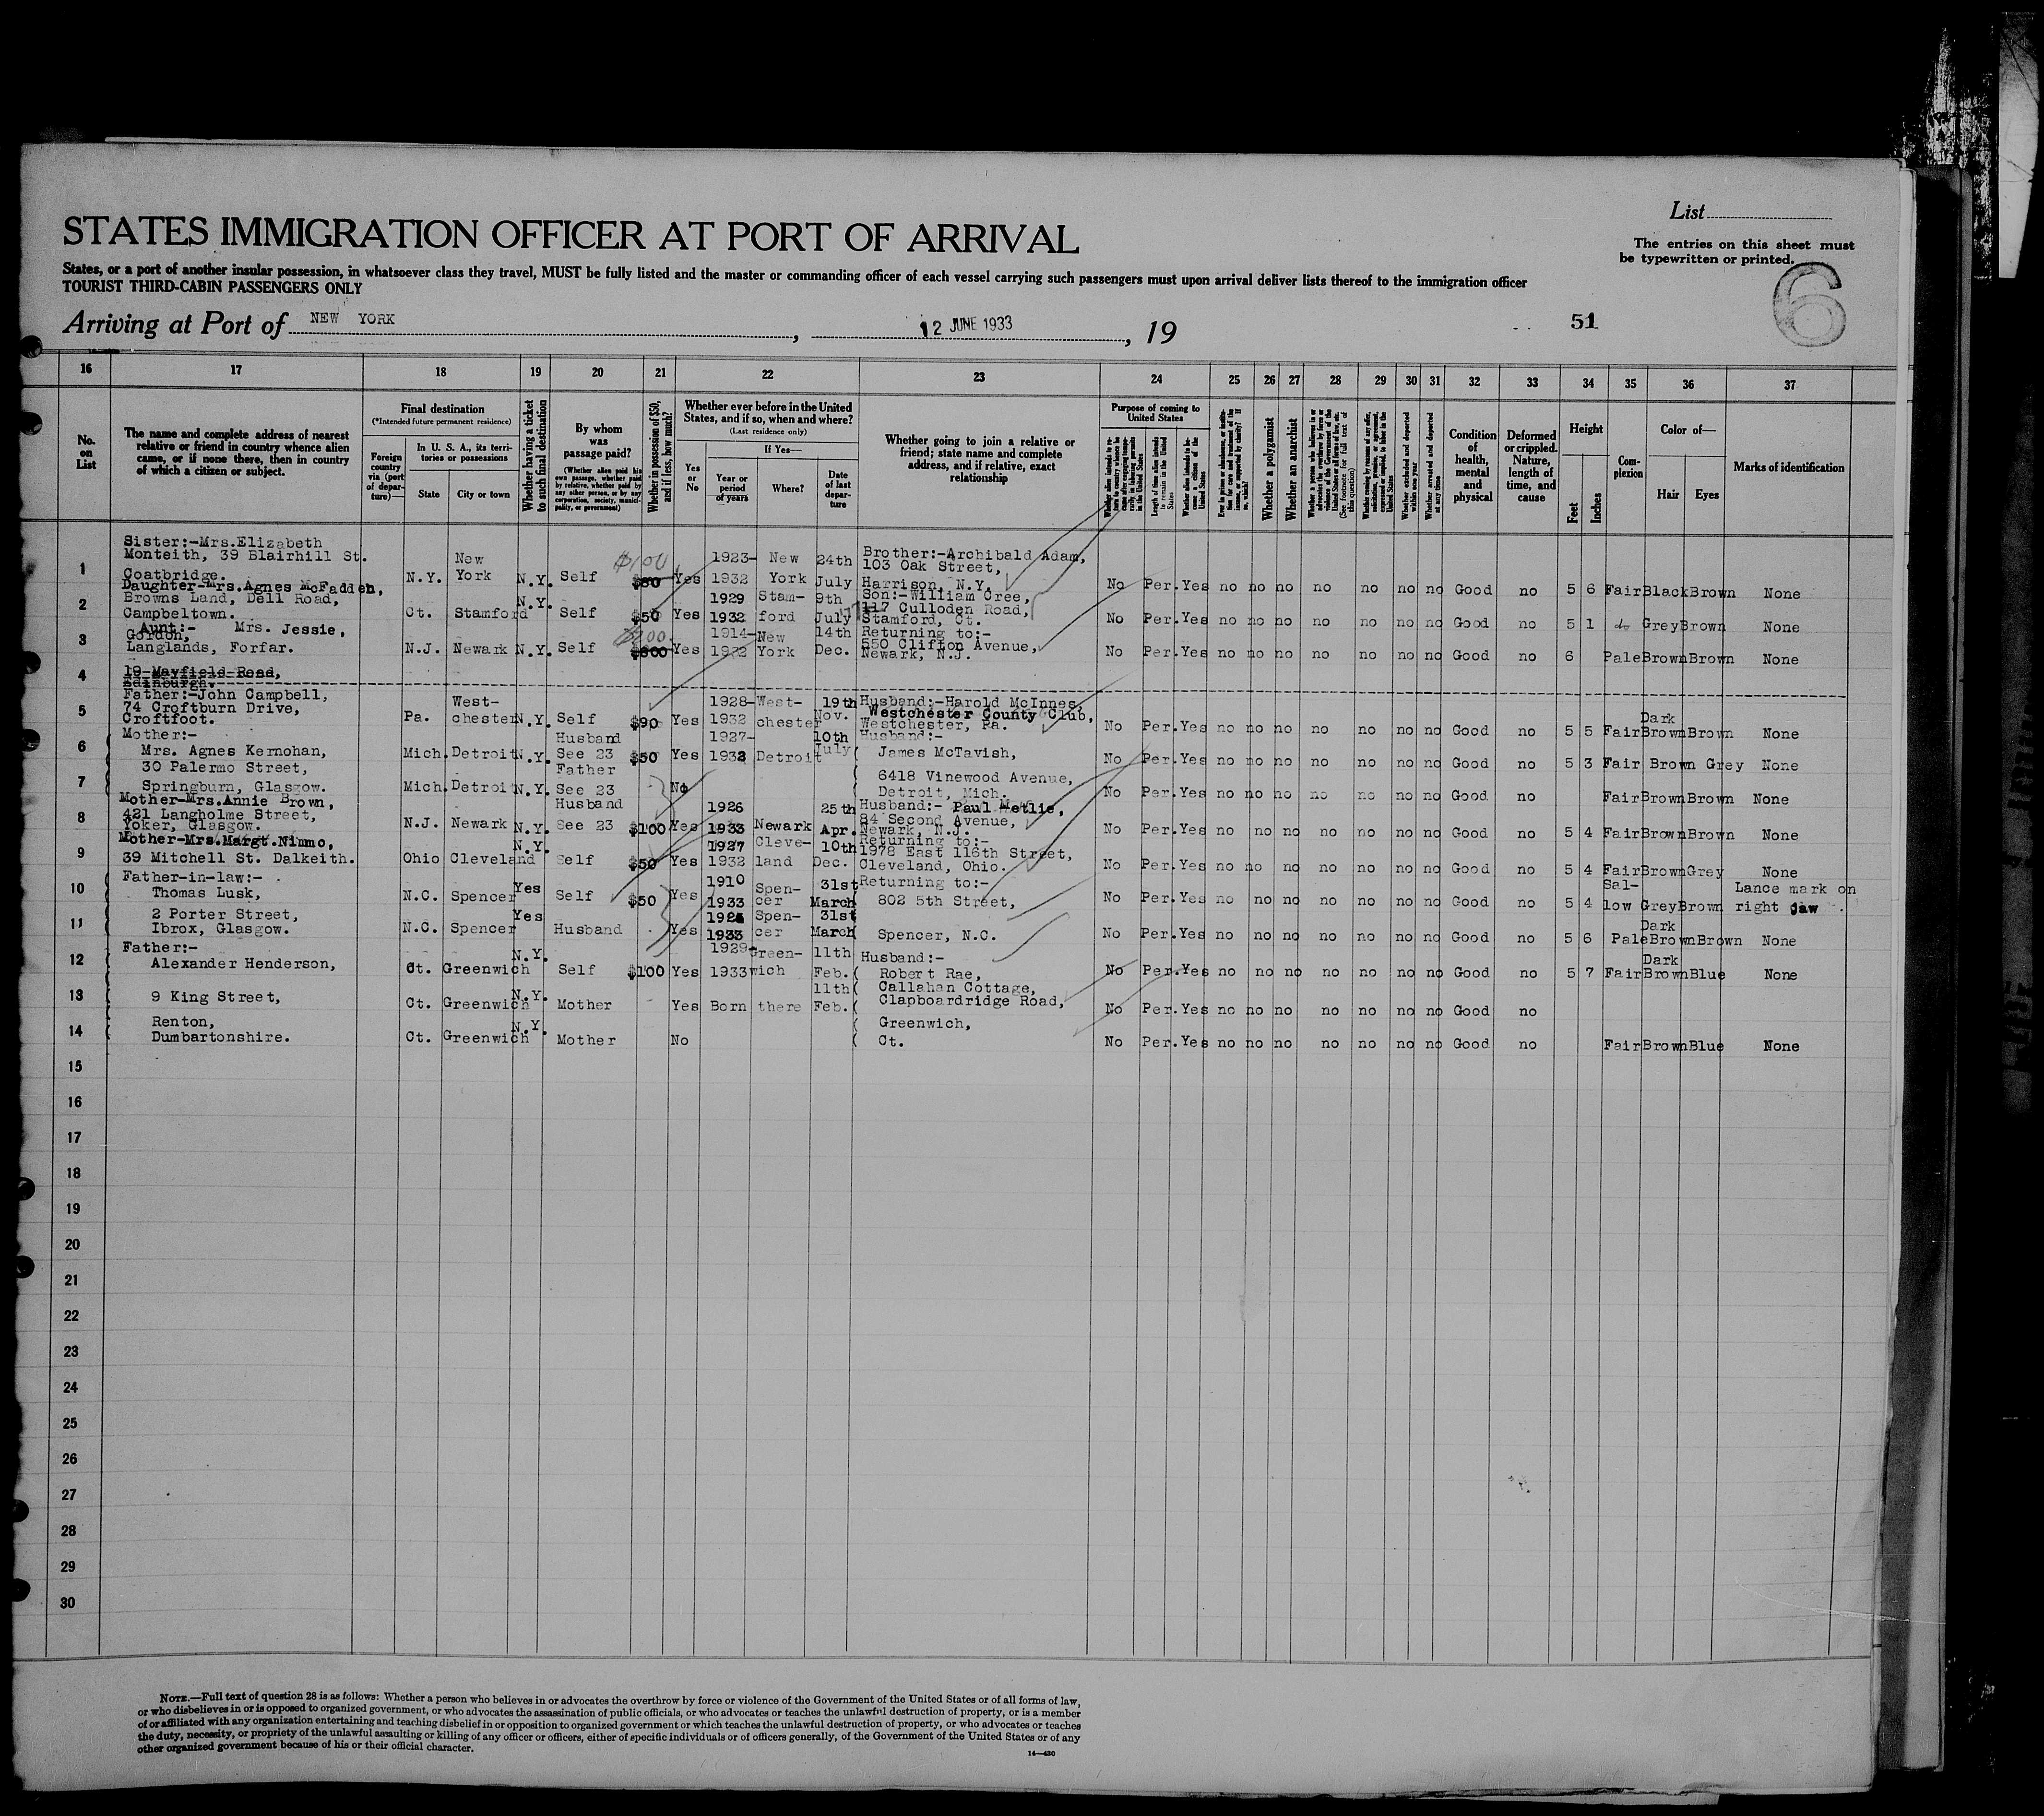 List
STATES IMMIGRATION OFFICER AT PORT OF ARRIVAL
The entries on this sheet must
be typewritten or printed.
States, or a port of another insular possession, in whatsoever class they travel, MUST be fully listed and the master or commanding officer of each vessel carrying such passengers must upon arrival deliver lists thereof to the immigration officer
TOURIST THIRD-CABIN PASSENGERS ONLY
6
Arriving at Port of NEW YORK, 12 JUNE 1933, 19
51
16 17 18 19 20 21 22 23 24 25 26 27 28 29 30 31 32 33 34 35 36 37
No. on List
The name and complete address of nearest relative or friend in country whence alien came, or if none there, then in country of which a citizen or subject.
Final destination
(*Intended future permanent residence)
Foreign country via (port of departure)—
In U. S. A., its territories or possessions
State
City or town
Whether having a ticket to such final destination
By whom was passage paid?
(Whether alien paid his own passage, whether paid by relative, whether paid by any other person, or by any corporation, society, municipality, or government)
Whether in possession of $50, and if less, how much?
Whether ever before in the United States, and if so, when and where?
(Last residence only)
Yes or No
If Yes—
Year or period of years
Where?
Date of last departure
Whether going to join a relative or friend; state name and complete address, and if relative, exact relationship
Purpose of coming to United States
Length of time alien intends to remain in the United States
Whether alien intends to become a citizen of the United States
Whether a polygamist
Whether an anarchist
(See footnote for full text of this question)
Whether excluded and deported within one year
Whether arrested and deported at any time
Condition of health, mental and physical
Deformed or crippled. Nature, length of time, and cause
Height
Feet
Inches
Complexion
Color of—
Hair
Eyes
Marks of identification
1 Sister:-Mrs.Elizabeth Monteith, 39 Blairhill St. Coatbridge. N.Y. New York N.Y. Self $100 $80 Yes 1923-1932 New York 24th July Brother:-Archibald Adam, 103 Oak Street, Harrison, N.Y. No Per. Yes no no no no no no no Good no 5 6 Fair Black Brown None
2 Daughter-Mrs.Agnes McFadden, Browns Land, Dell Road, Campbeltown. Ct. Stamford N.Y. Self $50 Yes 1929 1932 Stamford 9th July Son:-William Cree, 117 Culloden Road, Stamford, Ct. No Per. Yes no no no no no no no Good no 5 1 do Grey Brown None
3 Aunt:- Mrs. Jessie, Gordon, Langlands, Forfar. N.J. Newark N.Y. Self $200. $600 Yes 1914-1932 New York 14th Dec. Returning to:- 550 Clifton Avenue, Newark, N.J. No Per. Yes no no no no no no no Good no 6 Pale Brown Brown None
4 19 Mayfield Road, Edinburgh.
5 Father:-John Campbell, 74 Croftburn Drive, Croftfoot. Pa. West-chester N.Y. Self $90 Yes 1928-1932 West-chester 19th Nov. Husband:-Harold McInnes, Westchester County Club, Westchester, Pa. No Per. Yes no no no no no no no Good no 5 5 Fair Dark Brown Brown None
6 Mother:- Mrs. Agnes Kernohan, 30 Palermo Street, Mich. Detroit N.Y. Husband See 23 $50 Yes 1927-1932 Detroit 10th July Husband:- James McTavish, No Per. Yes no no no no no no no Good no 5 3 Fair Brown Grey None
7 Springburn, Glasgow. Mich. Detroit N.Y. Father See 23 - No 6418 Vinewood Avenue, Detroit, Mich. No Per. Yes no no no no no no no Good no Fair Brown Brown None
8 Mother-Mrs.Annie Brown, 421 Langholme Street, Yoker, Glasgow. N.J. Newark N.Y. Husband See 23 $100 Yes 1926 1933 Newark 25th Apr. Husband:- Paul Metlie, 84 Second Avenue, Newark, N.J. No Per. Yes no no no no no no no Good no 5 4 Fair Brown Brown None
9 Mother-Mrs.Margt.Nimmo, 39 Mitchell St. Dalkeith. Ohio Cleveland N.Y. Self $50 Yes 1927 1932 Cleve-land 10th Dec. Returning to:- 1978 East 116th Street, Cleveland, Ohio. No Per. Yes no no no no no no no Good no 5 4 Fair Brown Grey None
10 Father-in-law:- Thomas Lusk, N.C. Spencer Yes Self $50 Yes 1910 1933 Spen-cer 31st March Returning to:- 802 5th Street, No Per. Yes no no no no no no no Good no 5 4 Sal-low Grey Brown Lance mark on right jaw.
11 2 Porter Street, Ibrox, Glasgow. N.C. Spencer Yes Husband - Yes 1933 Spen-cer 31st March Spencer, N.C. No Per. Yes no no no no no no no Good no 5 6 Pale Dark Brown Brown None
12 Father:- Alexander Henderson, Ct. Greenwich N.Y. Self $100 Yes 1929-1933 Green-wich 11th Feb. Husband:- Robert Rae, Callahan Cottage, No Per. Yes no no no no no no no Good no 5 7 Fair Dark Brown Blue None
13 9 King Street, Ct. Greenwich N.Y. Mother - Yes Born there 11th Feb. Clapboardridge Road, No Per. Yes no no no no no no no Good no
14 Renton, Dumbartonshire. Ct. Greenwich N.Y. Mother No Greenwich, Ct. No Per. Yes no no no no no no no Good no Fair Brown Blue None
15
16
17
18
19
20
21
22
23
24
25
26
27
28
29
30
NOTE.—Full text of question 28 is as follows: Whether a person who believes in or advocates the overthrow by force or violence of the Government of the United States or of all forms of law,
or who disbelieves in or is opposed to organized government, or who advocates the assassination of public officials, or who advocates or teaches the unlawful destruction of property, or is a member
of or affiliated with any organization entertaining and teaching disbelief in or opposition to organized government or which teaches the unlawful destruction of property, or who advocates or teaches
the duty, necessity, or propriety of the unlawful assaulting or killing of any officer or officers, either of specific individuals or of officers generally, of the Government of the United States or of any
other organized government because of his or their official character.
14—430